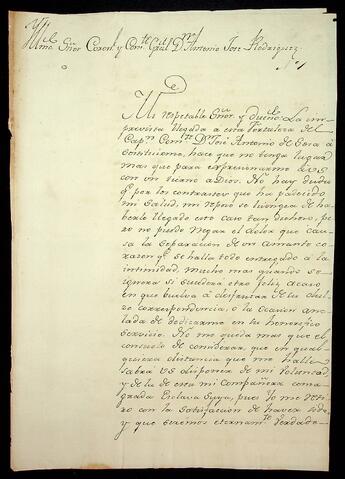 Yllmo Señor Coronl y Comte Gral Dn Antonio José Rodriguez
Mi respetable Señor y dueño: La im
prevista llegada a esta Fortaleza del
Capn Comte Dn José Antonio de Sosa a
constituirme, hace que no tenga lugar
mas que para expresionarme a VS
con un tierno a Dios. No hay duda
qe por los contrastes que ha padecido
mi salud, mi genio se lisongea de ha
berle llegado este caso tan dichoso, pe
ro no puedo negar el dolor que cau
sa la separacion de un amante co
razon qe se halla todo entregado a la
intimidad, mucho mas quando se
ignora si sucedera otro feliz acaso
en que buelva a disfrutar de su dul
ce correspondencia, o la ocacion anc
lada de dedicarme en su honorifico
servicio. No me queda mas que el
consuelo de considerar, que en qual
quiera distancia que me halle
sabrá VS disponer de mi voluntad,
y de la de esta mi compañera consa
grada Esclava Suya, pues yo me reti
ro con la satisfaccion de haver sido,
y que seremos eternamte verdade-